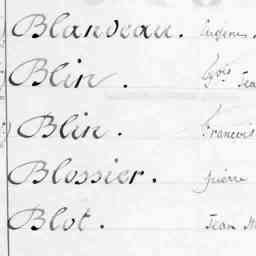 Blandeau. Eugène.
Blin. Jea
Blin. Francois
Blossier. pierre
Blot. Jean M